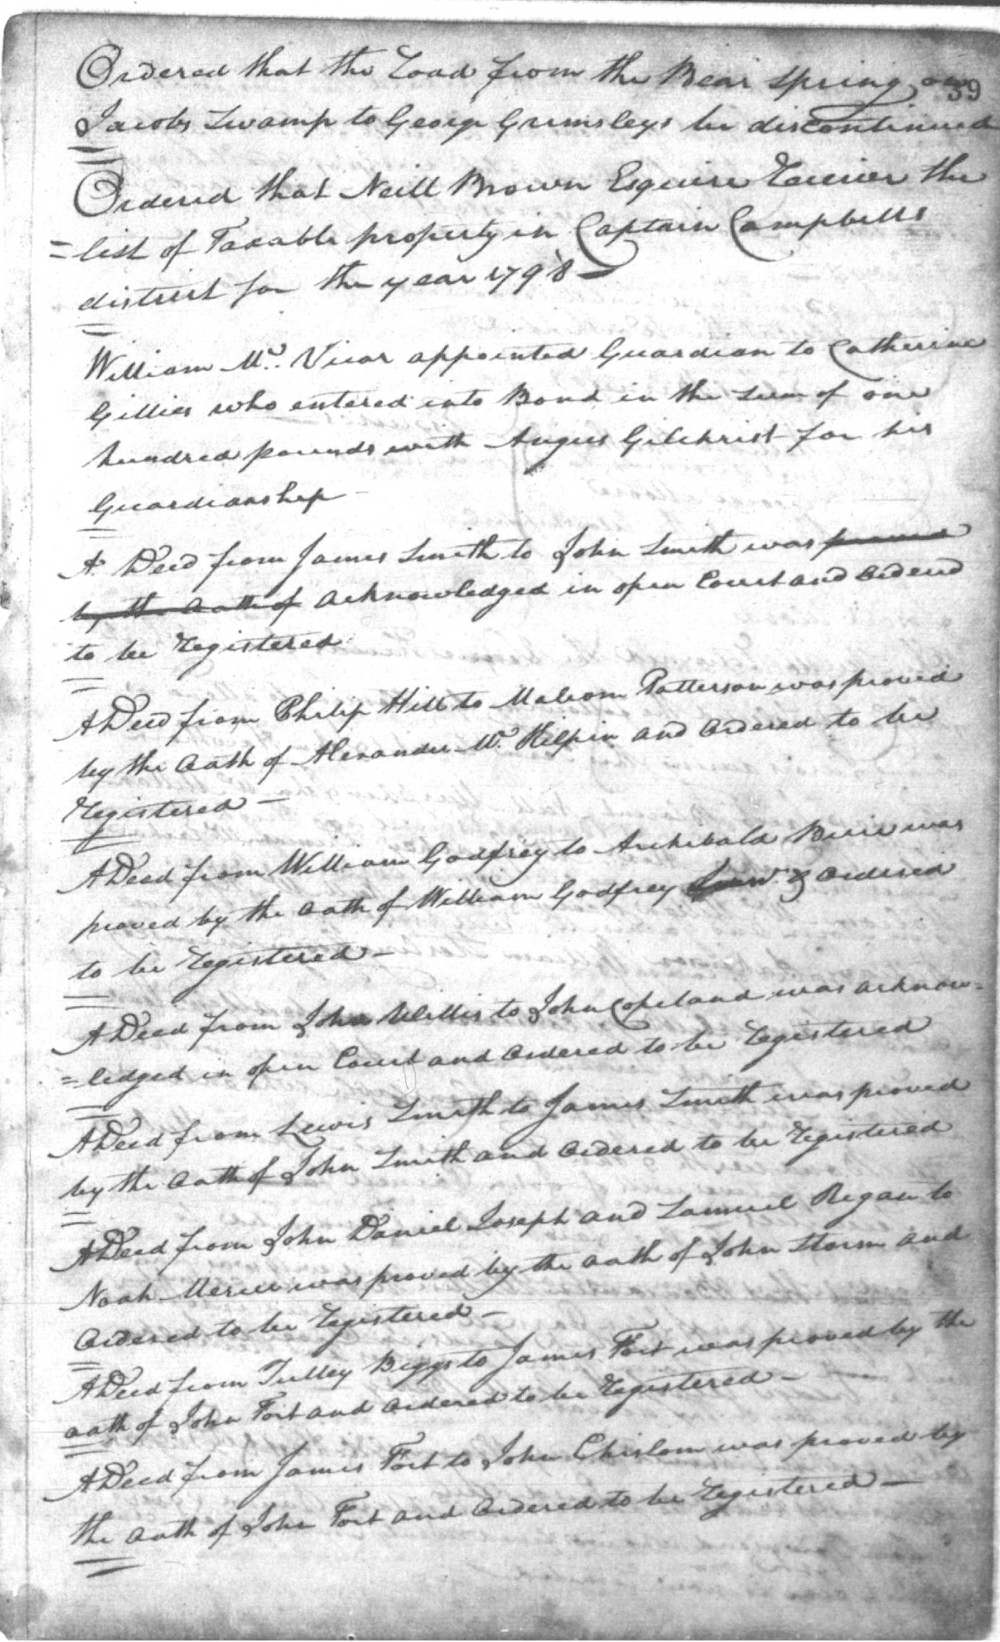 39
Ordered that the Road from the Bear Spring on
Jacobs Swamp to George Grimsleys be discontinued
Ordered that Neill Brown Esquire Receiver the
=list of Taxable property in Captain Campbells
district for the year 1798—
William Mc. Vicar appointed Guardian to Catherine
Gillies who entered into Bond in the Sum of one
hundred pounds with Angus Gilchrist for his
Guardianship —
A Deed from James Smith to John Smith was proved
by the Oath of Acknowledged in open Court and Ordered
to be Registered
A Deed from Philip Hill to Malcom Patterson was proved
by the Oath of Alexander Mc. Kilpin and Ordered to be
Registered —
A Deed from William Godfrey to Archibald Buie was
proved by the Oath of William Godfrey Junr. & Ordered
to be Registered —
A Deed from John Willis to John Copeland was Acknow=
=ledged in open Court and Ordered to be Registered
A Deed from Lewis Smith to James Smith was proved
by the Oath of John Smith and Ordered to be Registered
A Deed from John Daniel Joseph and Samuel Regan to
Noah Mercer was proved by the Oath of John Storm and
Ordered to be Registered —
A Deed from Tulley Biggs to James Fort was proved by the
oath of John Fort and Ordered to be Registered —
A Deed from James Fort to John Chislom was proved by
the Oath of John Fort and Ordered to be Registered —